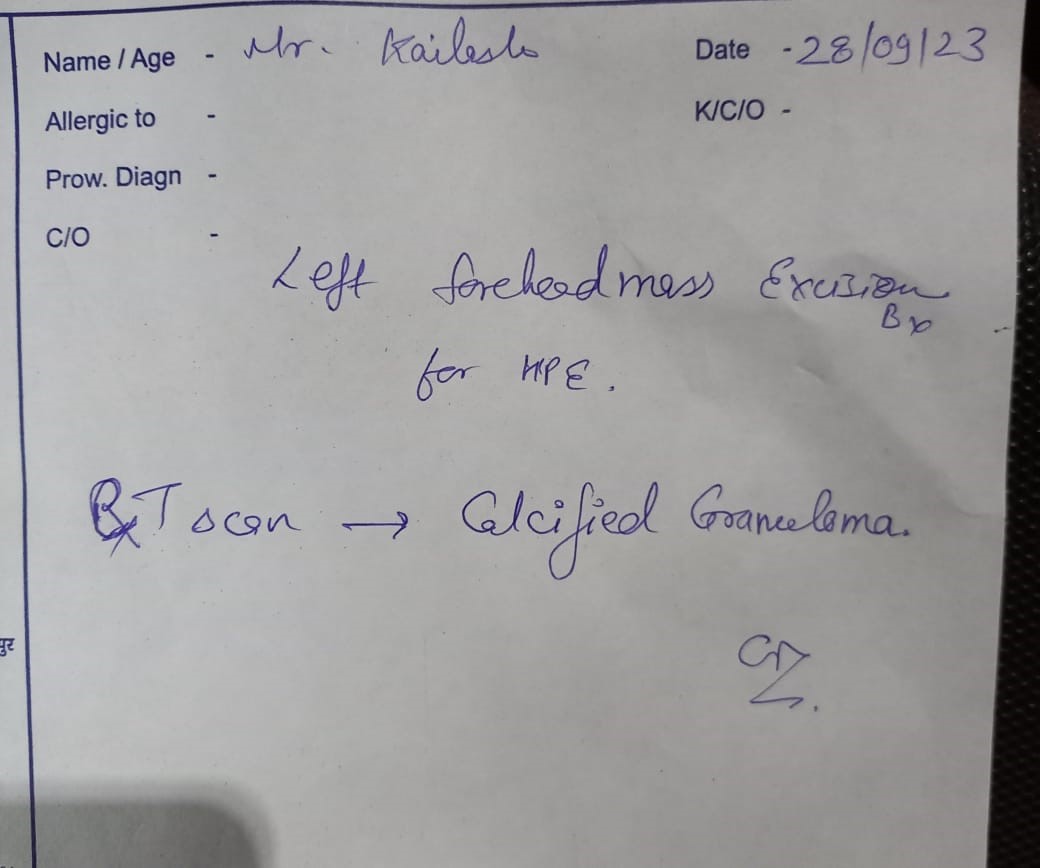 Name / Age - Mr. Kailesh
Date - 28/09/23
Allergic to -
K/C/O -
Prow. Diagn -
C/O -
Left forehead mass Excision
Bx
for HPE.
CT scan → Calcified Granuloma.
पुर